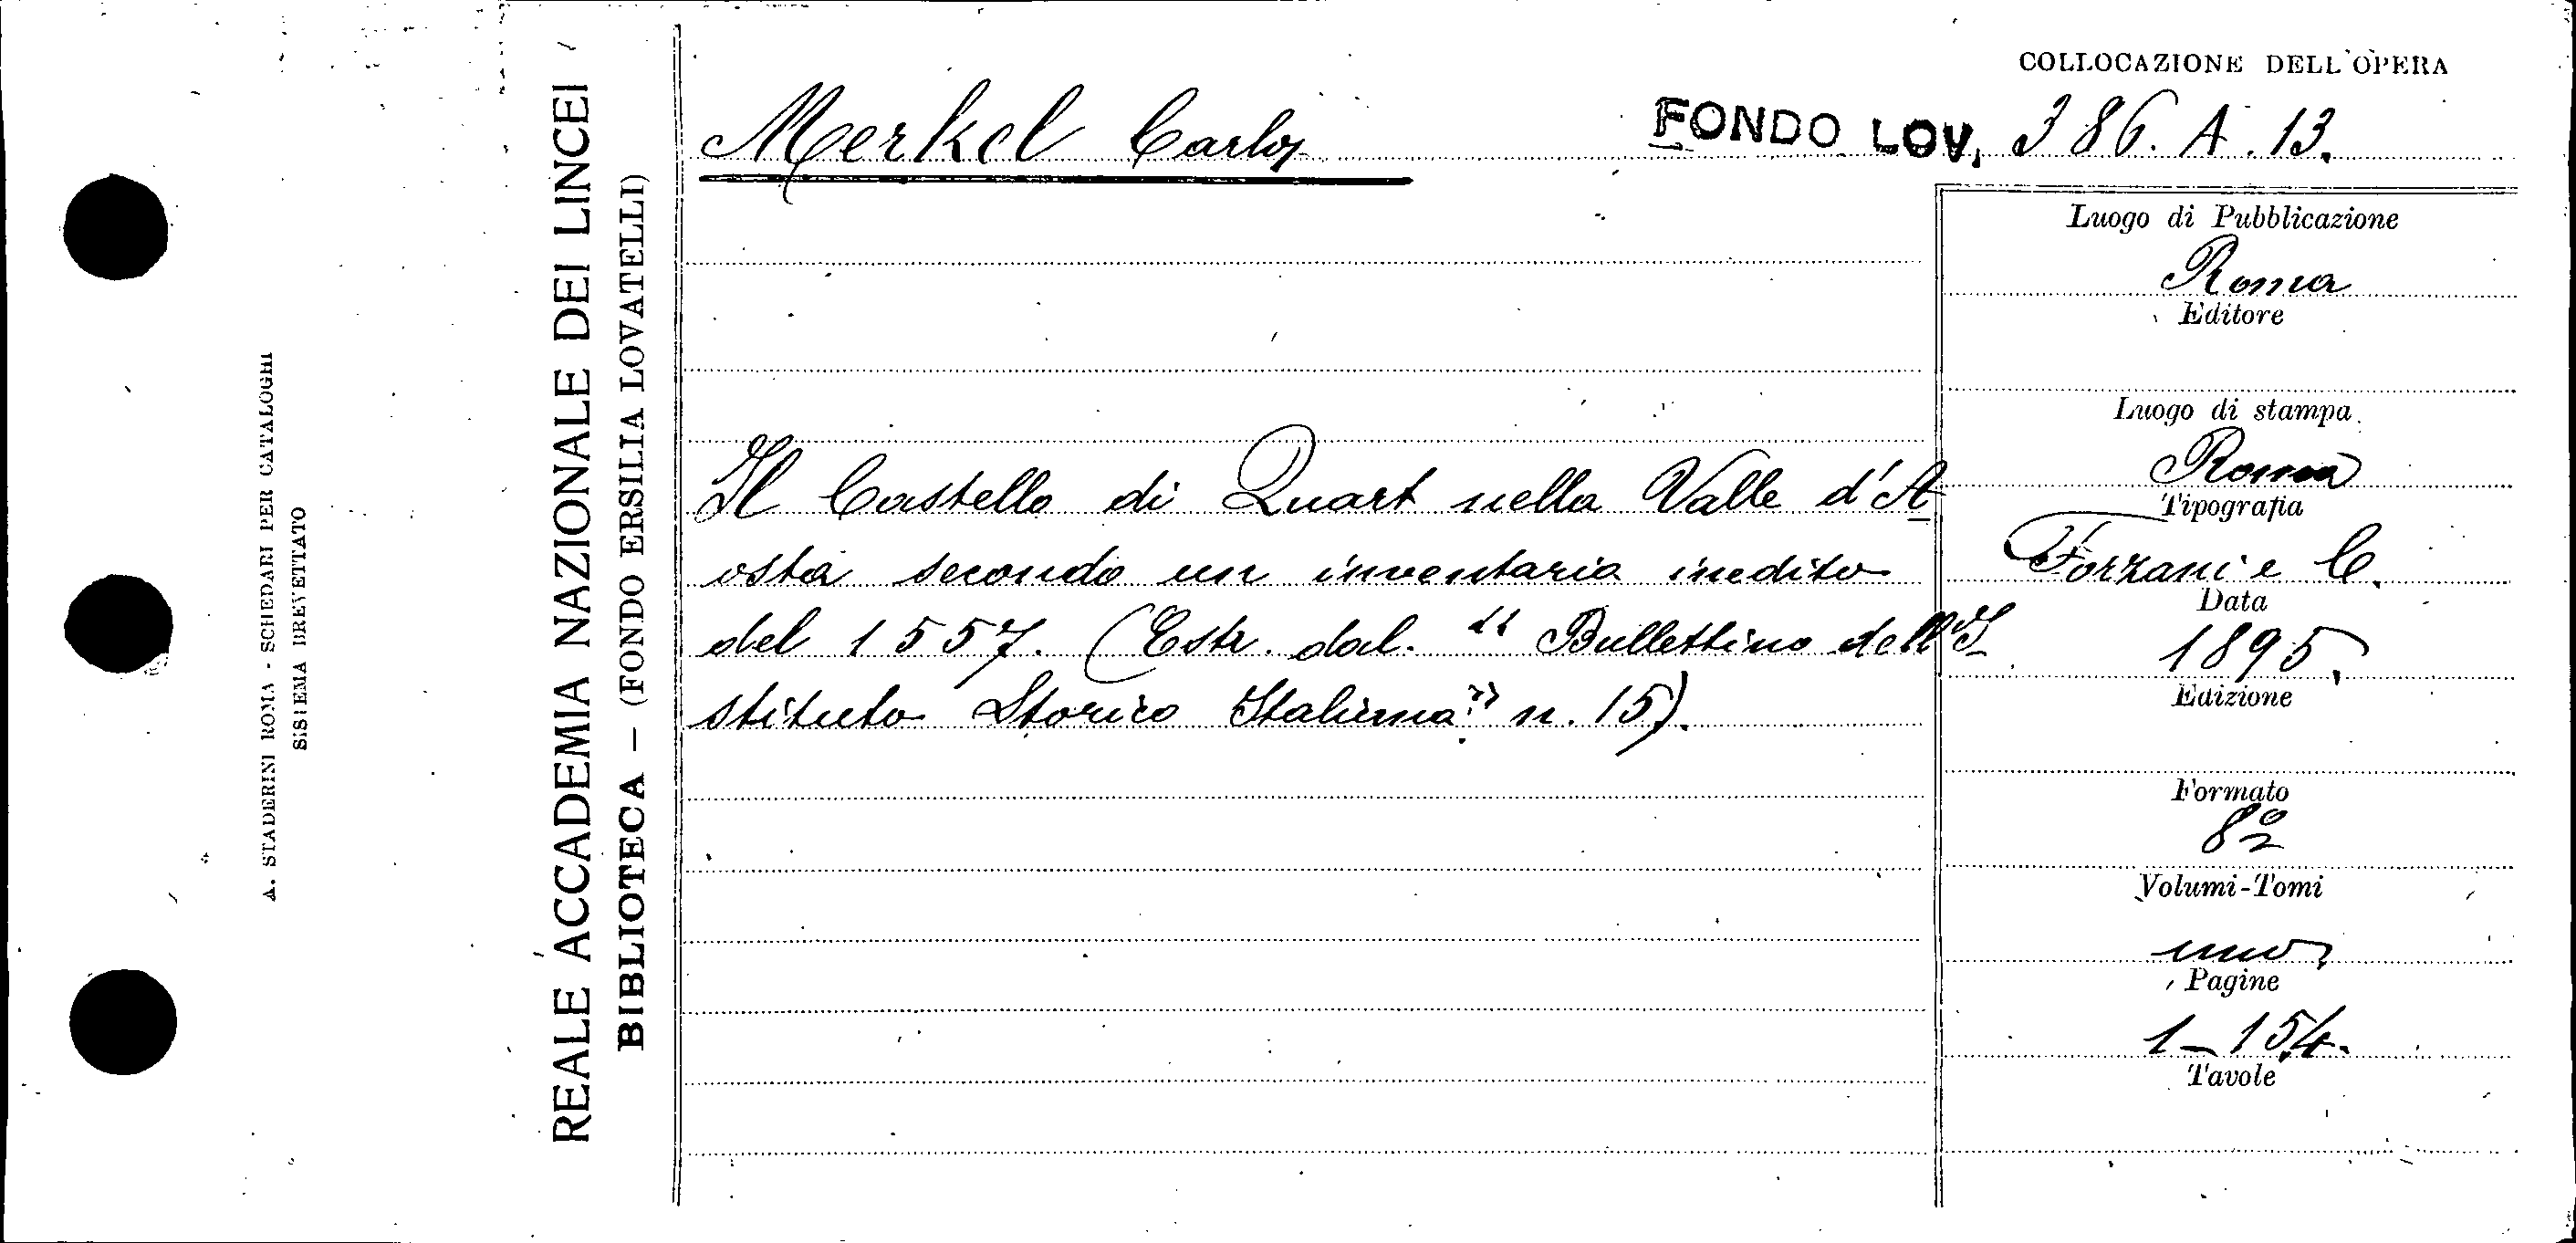 A. STADERINI ROMA - SCHEDARI PER CATALOGHI
SISTEMA BREVETTATO
REALE ACCADEMIA NAZIONALE DEI LINCEI
BIBLIOTECA — (FONDO ERSILIA LOVATELLI)
COLLOCAZIONE DELL'OPERA
Merkel Carlo
FONDO LOV. 386. A. 13.
Il Castello di Quart nella Valle d'A
osta secondo un inventario inedito
del 1557. (Estr. dal. "Bullettino dell'I
stituto Storico Italiano" n. 15).
Luogo di Pubblicazione
Roma
Editore
Luogo di stampa
Roma
Tipografia
Forzani e C.
Data
1895.
Edizione
Formato
8º
Volumi-Tomi
uno
Pagine
1-154.
Tavole